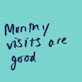 Monthly
visits are
good